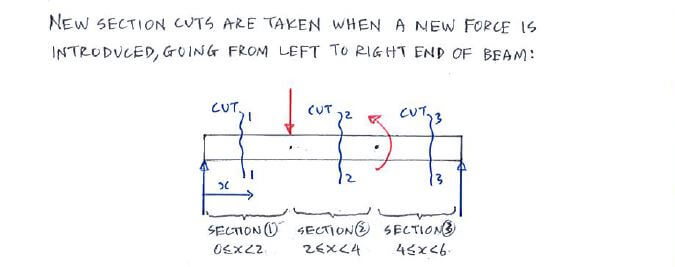 NEW SECTION CUTS ARE TAKEN WHEN A NEW FORCE IS
INTRODUCED, GOING FROM LEFT TO RIGHT END OF BEAM:
CUT 1 CUT 2 CUT 3
1 2 3
x
SECTION ① SECTION ② SECTION ③
0≤x<2 2≤x<4 4≤x<6